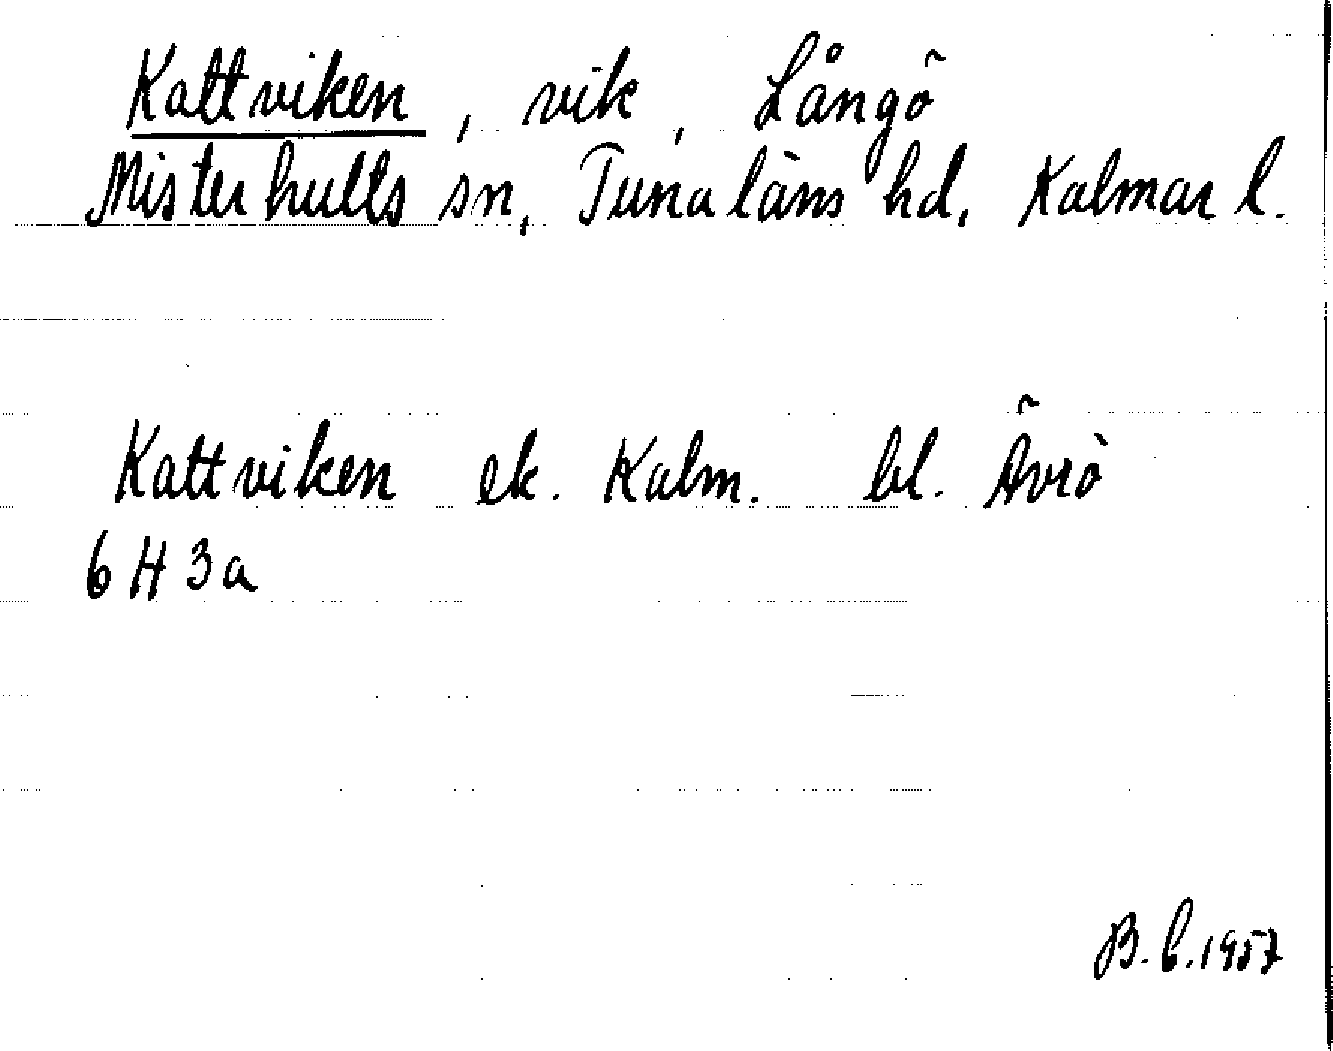 Kattviken, vik, Långö
Misterhults sn, Tunaläns hd, Kalmar l.
Kattviken ek. Kalm. bl. Ävrö
6 H 3 a
B. C. 1957